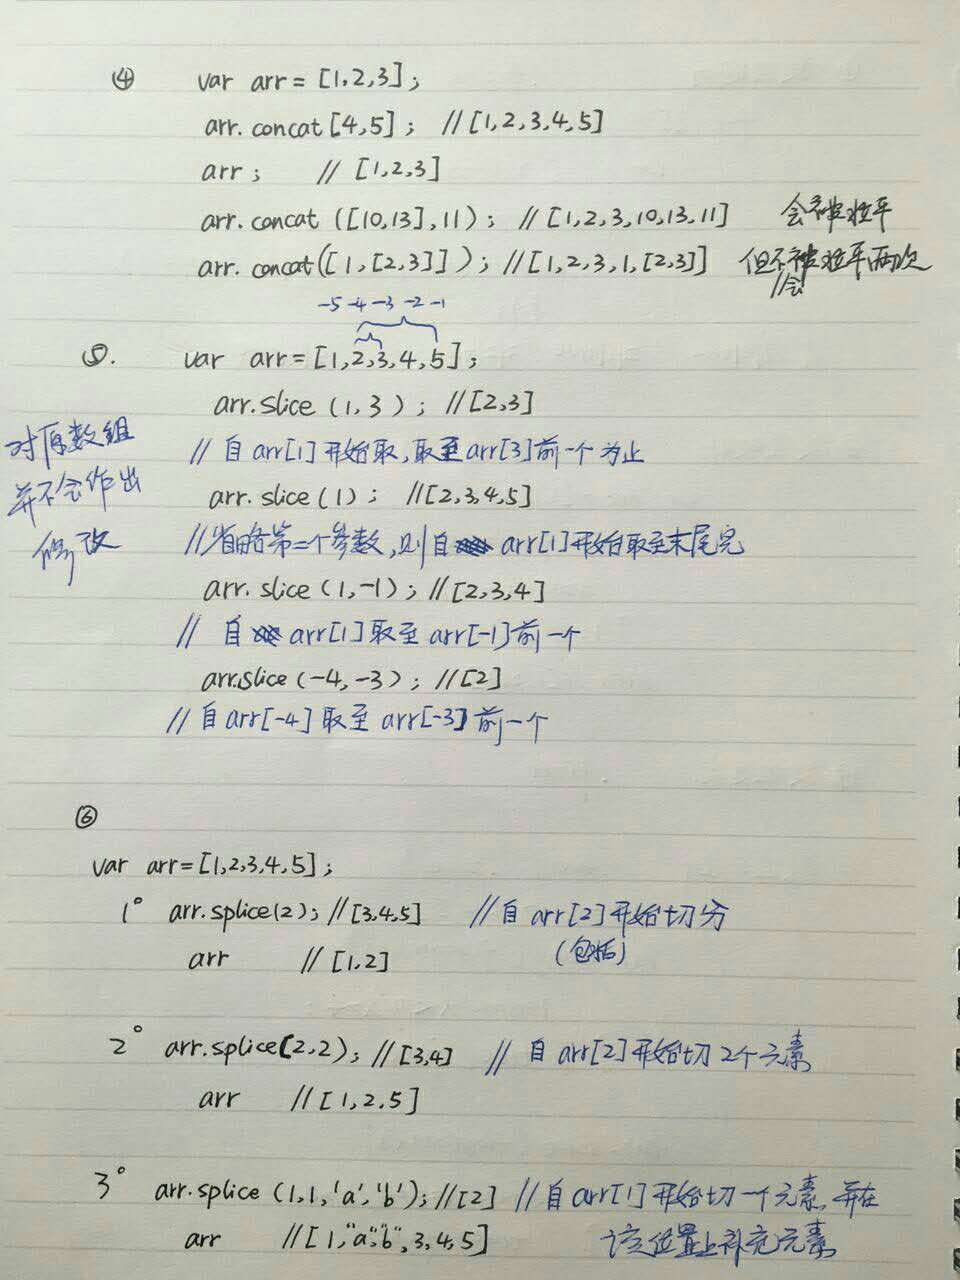 ④ var arr = [1,2,3];
arr.concat[4,5]; //[1,2,3,4,5]
arr; // [1,2,3]
arr.concat ([10,13],11); //[1,2,3,10,13,11] 会被拉平
arr.concat([1,[2,3]]); //[1,2,3,1,[2,3]] 但不会被拉平两次
-5 -4 -3 -2 -1
⑤. var arr=[1,2,3,4,5];
arr.slice (1,3); //[2,3]
对原数组
并不会作出
修改
// 自arr[1]开始取,取至arr[3]前一个为止
arr.slice(1); //[2,3,4,5]
//省略第二个参数,则自arr[1]开始取至末尾完
arr.slice(1,-1); //[2,3,4]
// 自arr[1]取至arr[-1]前一个
arr.slice(-4,-3); //[2]
// 自arr[-4]取至arr[-3]前一个
⑥
var arr=[1,2,3,4,5];
1° arr.splice(2); //[3,4,5] //自arr[2]开始切分
(包括)
arr // [1,2]
2° arr.splice(2,2); //[3,4] // 自arr[2]开始切2个元素
arr //[1,2,5]
3° arr.splice (1,1,'a','b'); //[2] //自arr[1]开始切一个元素,并在
该位置上补充元素
arr //[1,"a","b",3,4,5]